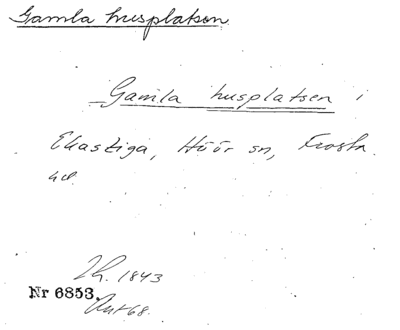 Gamla husplatsen
Gamla husplatsen i
Ekastiga, Höör sn, Frosta
hd.
Lh. 1843
Nr 6853.
Avt 68.